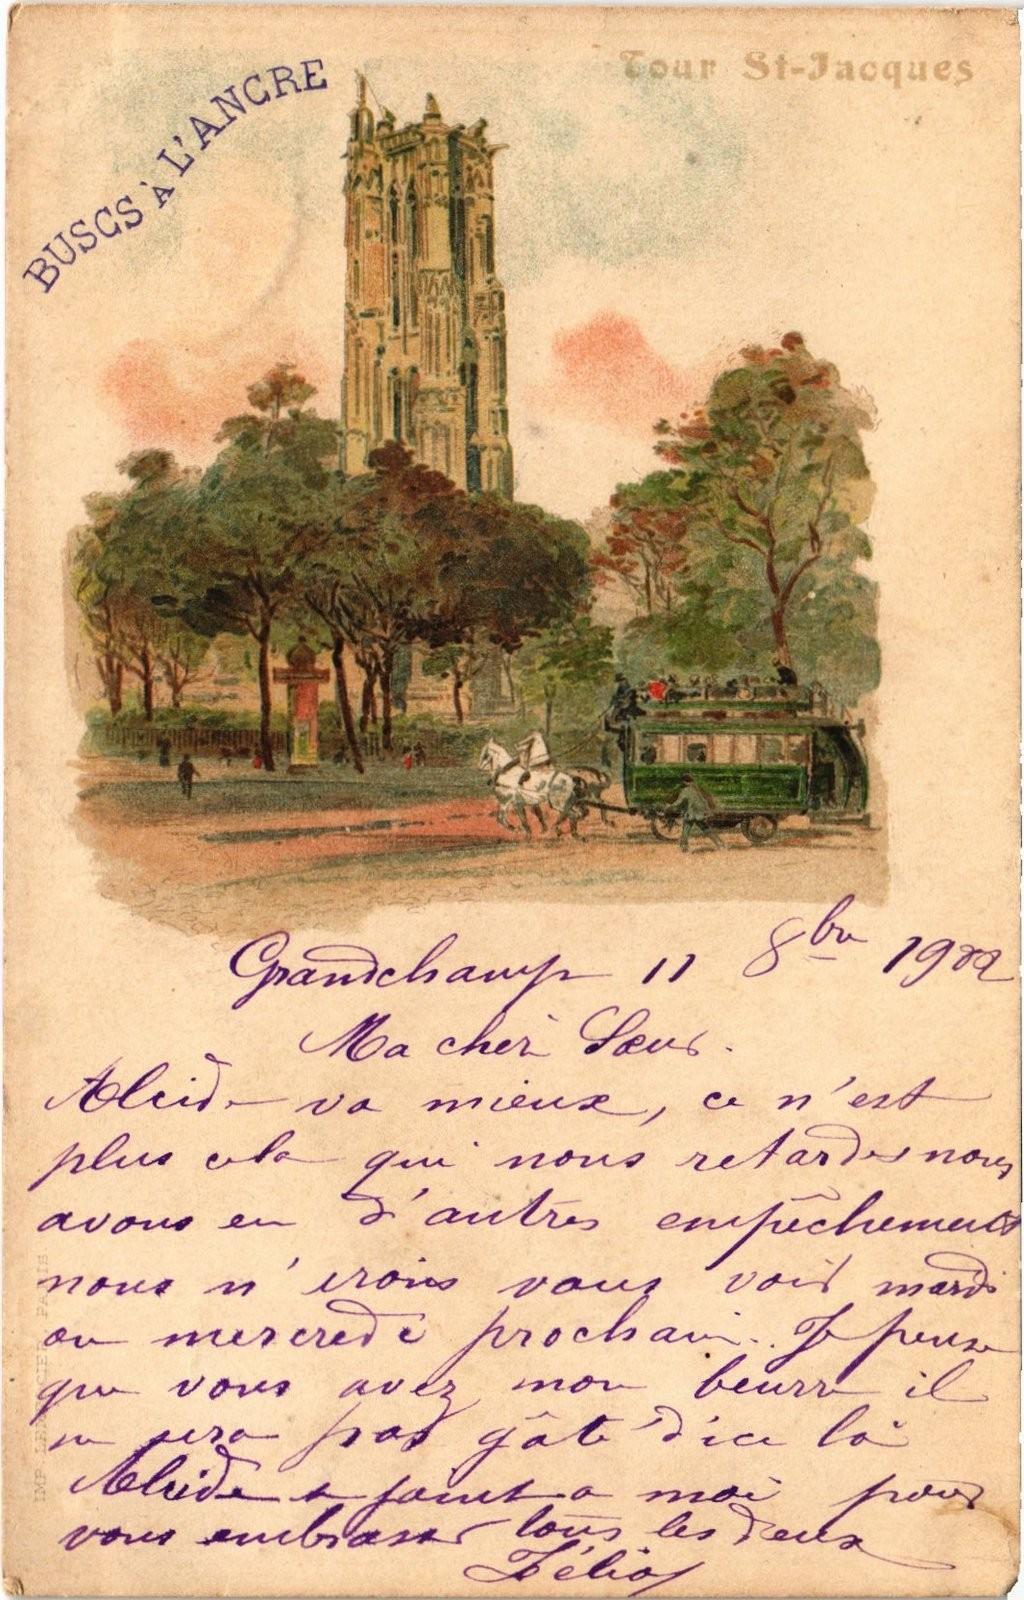 Tour St-Jacques
BUSCS à L'ANCRE
Grandchamp 11 8bre 1902
Ma cher Sœur.
Alcide va mieux, ce n'est
plus cela qui nous retardes nous
avons eu d'autres empêchements
nous n'irons vous voir mardi
ou mercredi prochain. Je pense
que vous avez mon beurre il
ne sera pas gâté d'ici là
Alcide se joint a moi pour
vous embrasser tous les deux
IMP. LEMERCIER PARIS